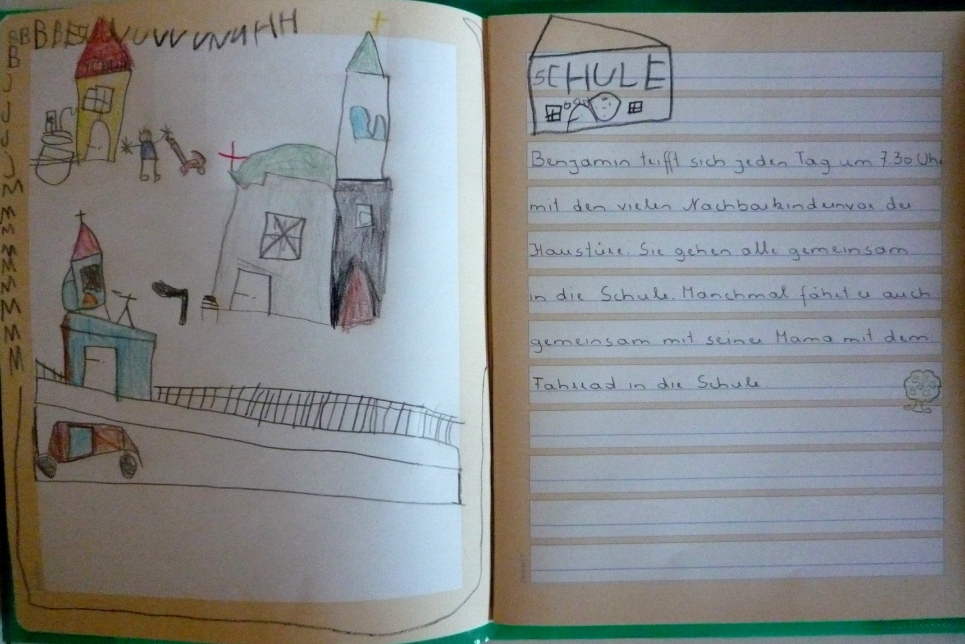 SCHULE
Benjamin trifft sich jeden Tag um 7.30 Uhr
mit den vielen Nachbarkindern vor der
Haustüre. Sie gehen alle gemeinsam
in die Schule. Manchmal fährt er auch
gemeinsam mit seiner Mama mit dem
Fahrrad in die Schule